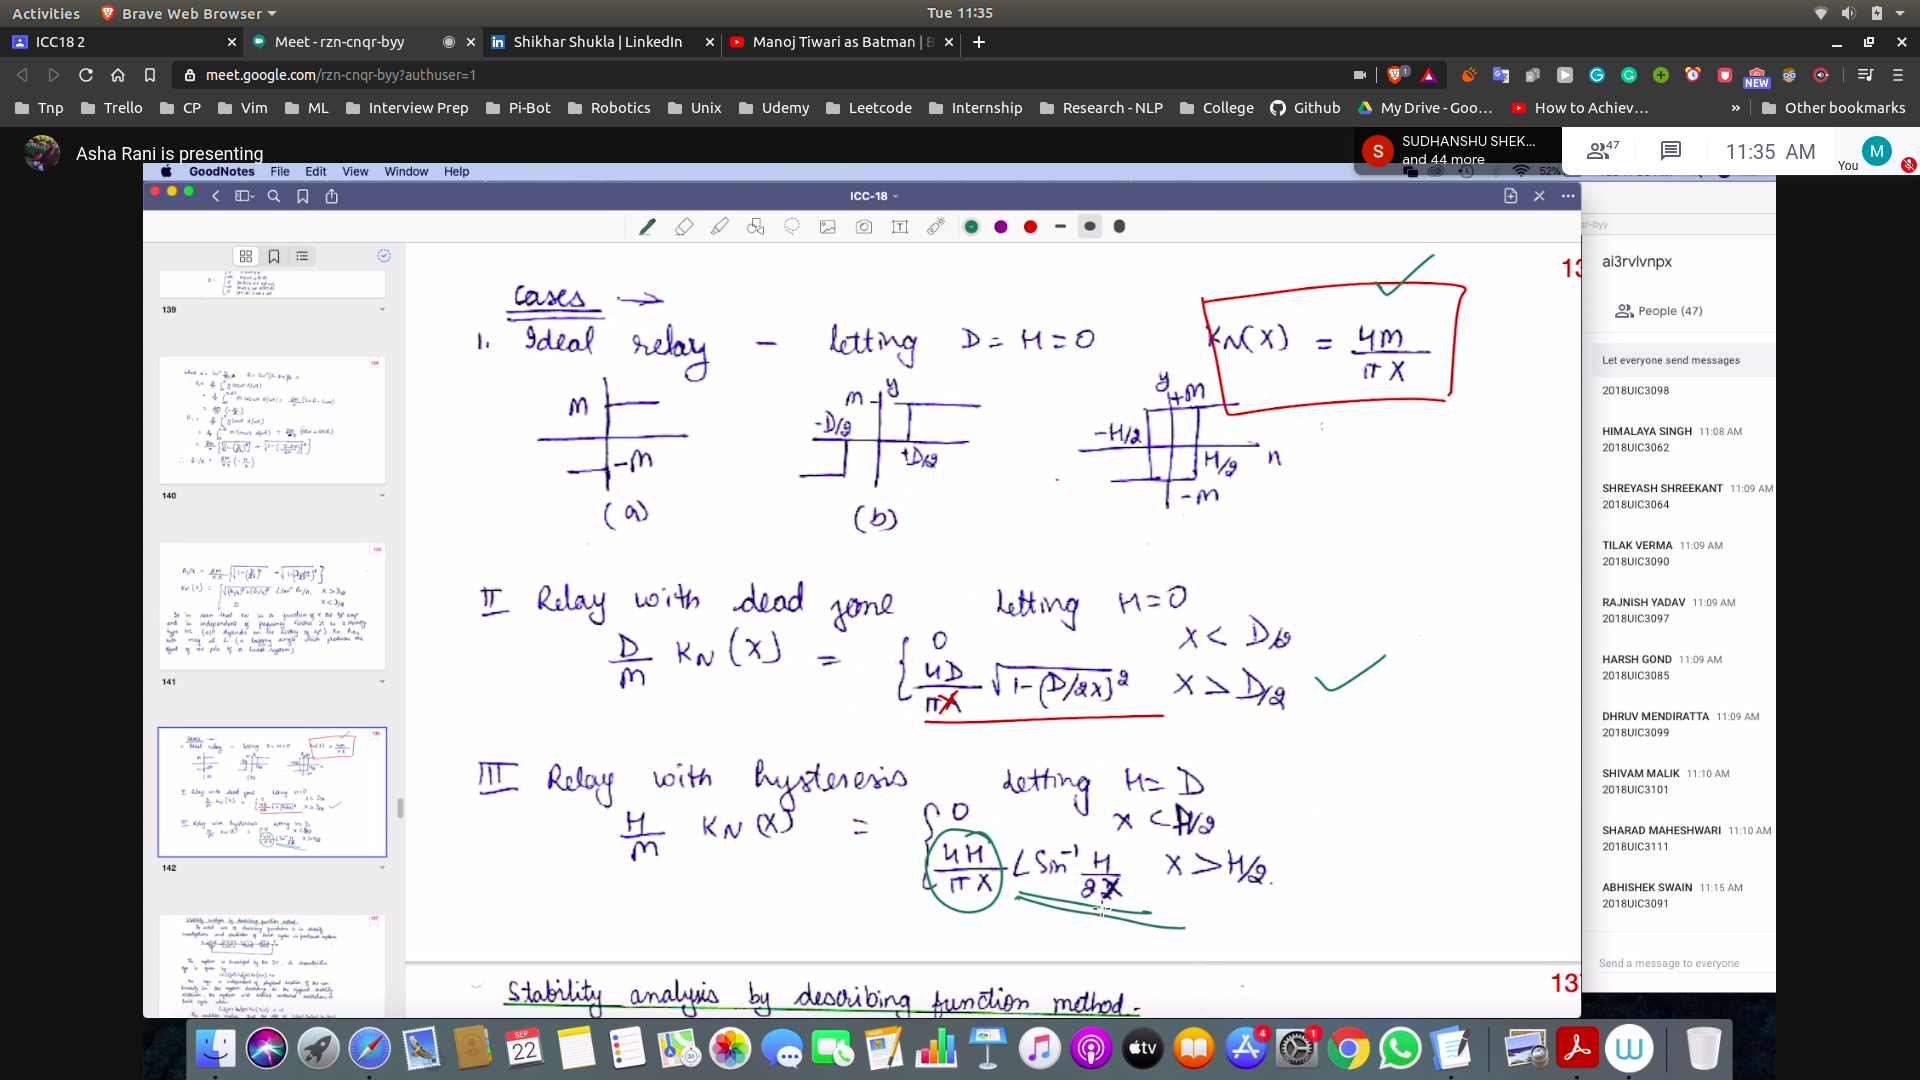 Activities
Brave Web Browser
Tue 11:35
ICC18 2
Meet - rzn-cnqr-byy
Shikhar Shukla | LinkedIn
Manoj Tiwari as Batman | B
meet.google.com/rzn-cnqr-byy?authuser=1
NEW
Tnp
Trello
CP
Vim
ML
Interview Prep
Pi-Bot
Robotics
Unix
Udemy
Leetcode
Internship
Research - NLP
College
Github
My Drive - Goo...
How to Achiev...
»
Other bookmarks
Asha Rani is presenting
S
SUDHANSHU SHEK...
and 44 more
47
11:35 AM
You
M
GoodNotes
File
Edit
View
Window
Help
52%
ICC-18
139
140
141
142
13
Cases →
1. Ideal relay - letting D = H = 0
KN(X) = 4M / πX
M
-M
(a)
M
y
-D/2
+D/2
(b)
y
+M
-H/2
H/2
n
-M
II Relay with dead zone letting H = 0
D/M KN(X) = { 0 X < D/2
4D/π √1-(D/2X)² X > D/2
III Relay with hysteresis letting H = D
H/M KN(X) = { 0 X < H/2
4H/πX ∠Sin⁻¹ H/2X X > H/2.
13
Stability analysis by describing function method.
qr-byy
ai3rvlvnpx
People (47)
Let everyone send messages
2018UIC3098
HIMALAYA SINGH 11:08 AM
2018UIC3062
SHREYASH SHREEKANT 11:09 AM
2018UIC3064
TILAK VERMA 11:09 AM
2018UIC3090
RAJNISH YADAV 11:09 AM
2018UIC3097
HARSH GOND 11:09 AM
2018UIC3085
DHRUV MENDIRATTA 11:09 AM
2018UIC3099
SHIVAM MALIK 11:10 AM
2018UIC3101
SHARAD MAHESHWARI 11:10 AM
2018UIC3111
ABHISHEK SWAIN 11:15 AM
2018UIC3091
Send a message to everyone
SEP
22
tv
4
1
W